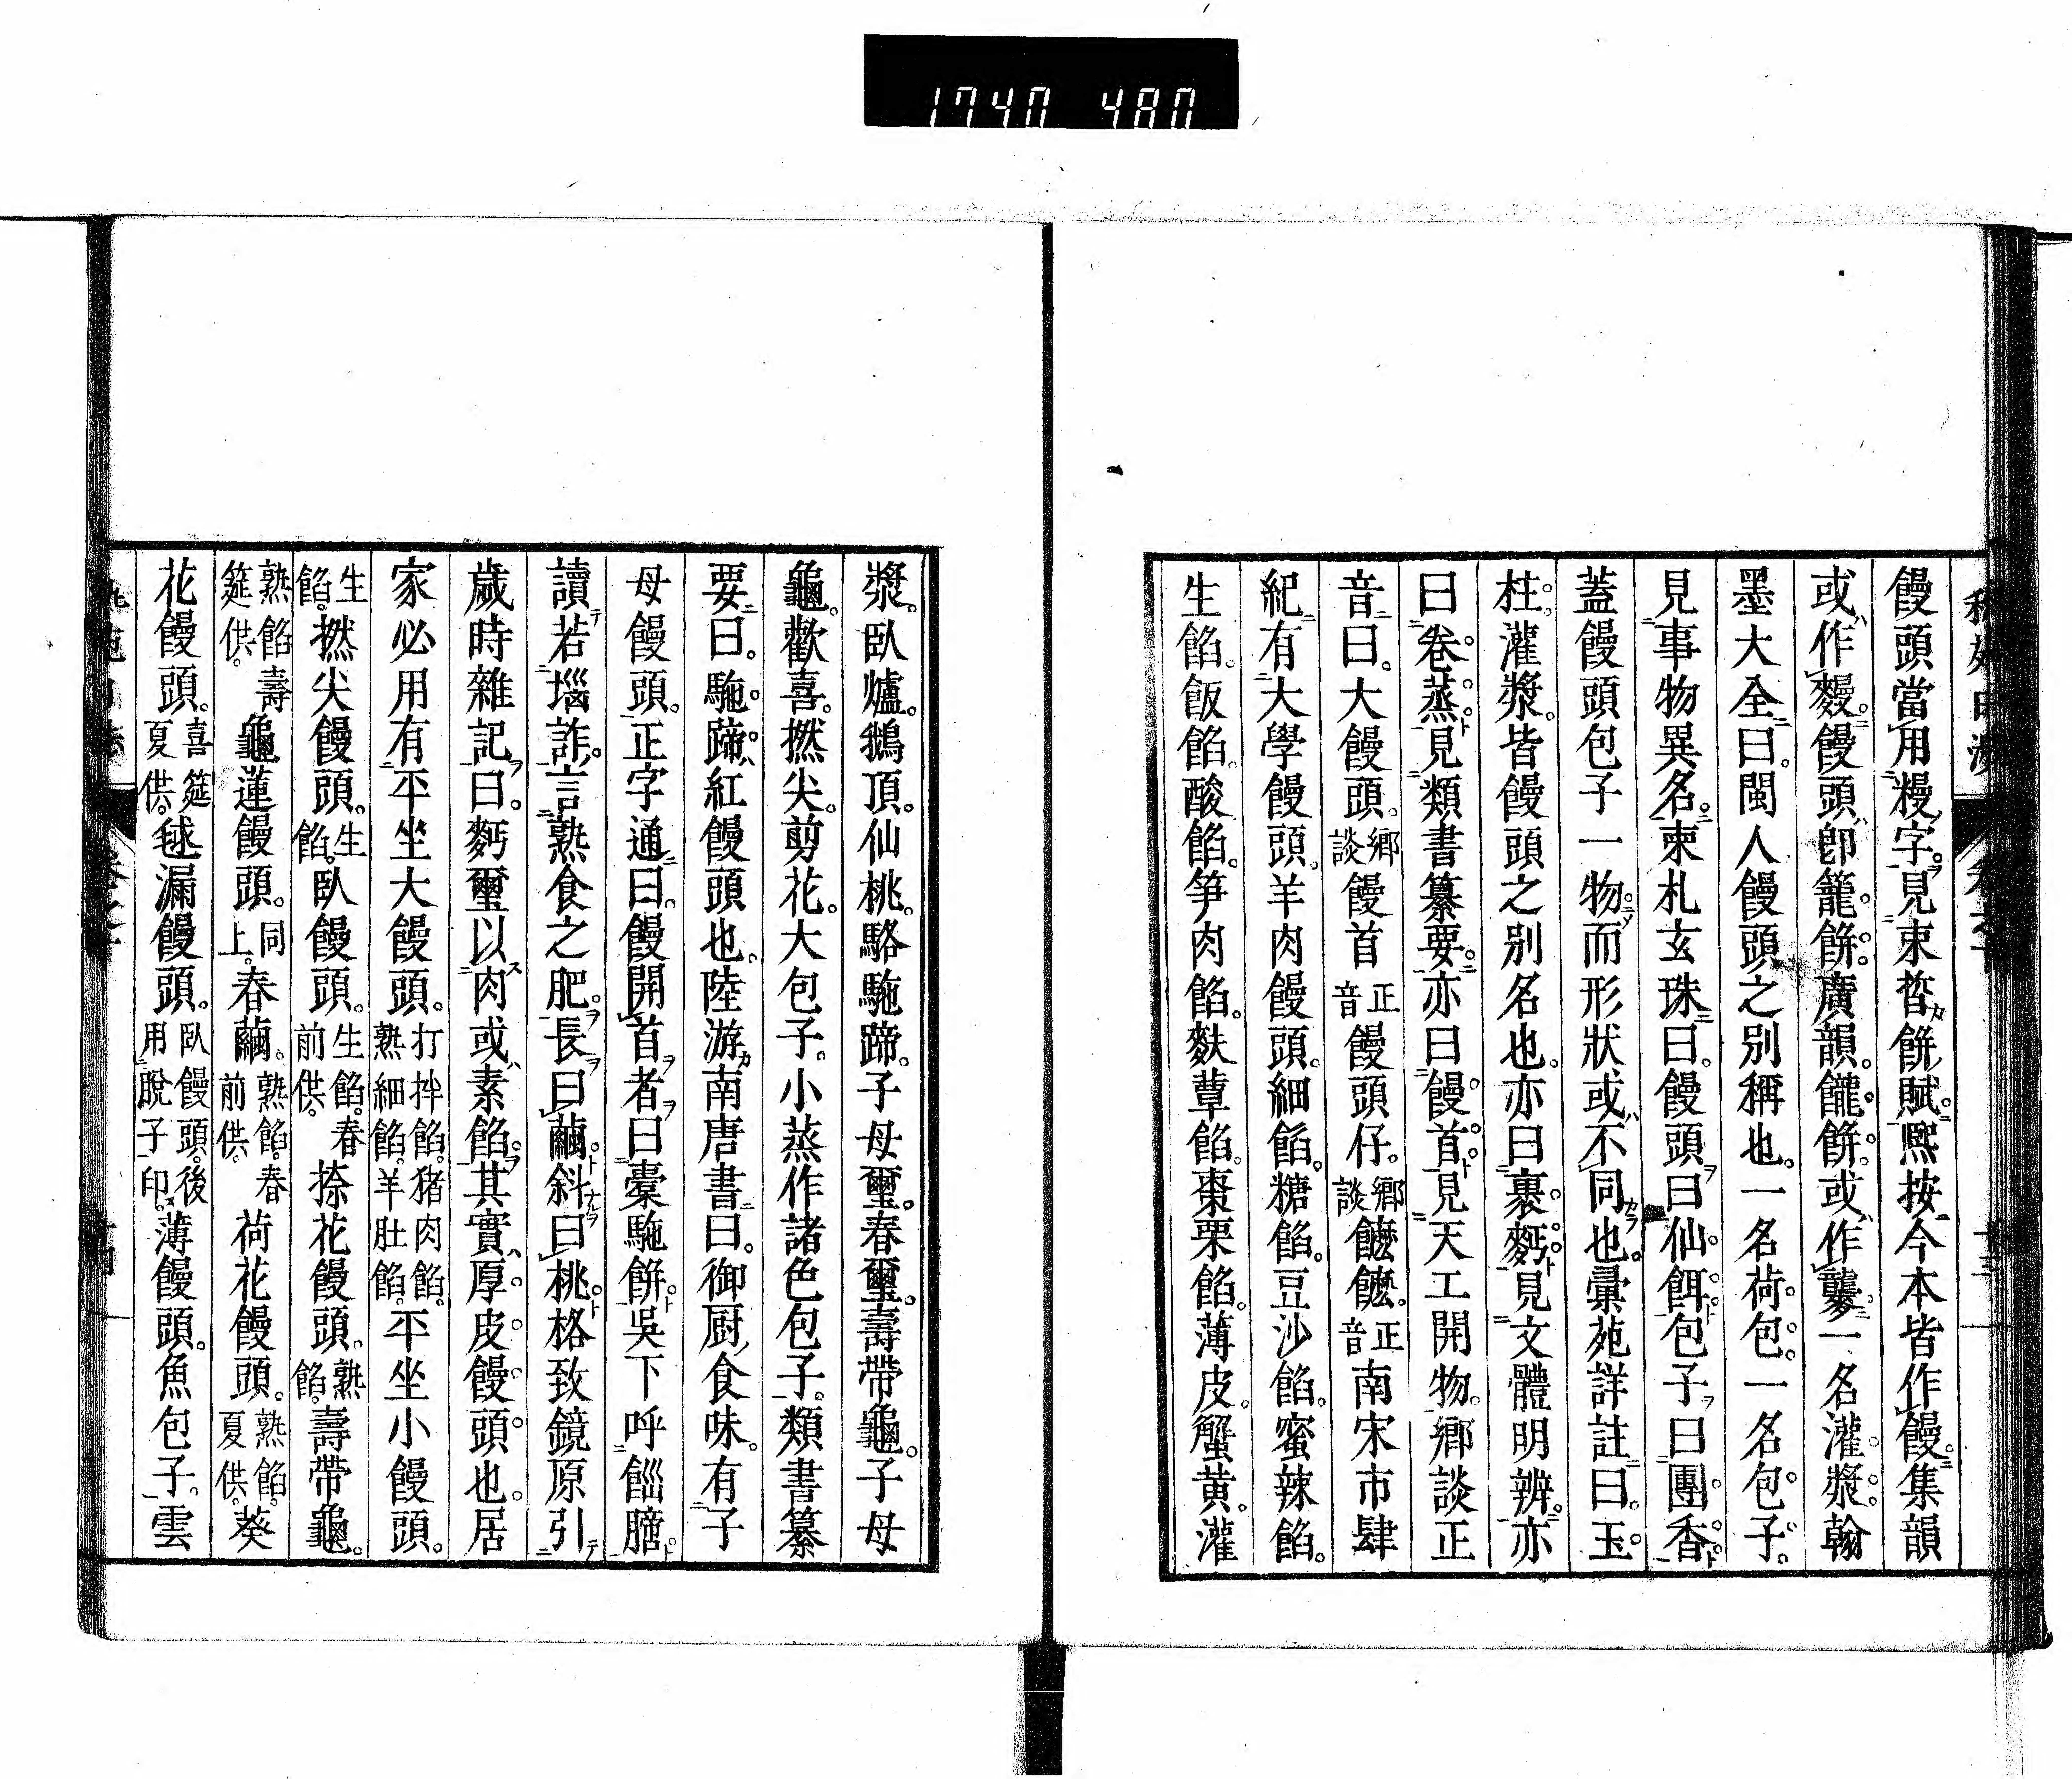 1740 480
饅頭當用糗字見束晳餅賦熙按今本皆作饅集韻
或作䊡饅頭卽籠餅廣韻䭚餅或作䰐一名灌漿翰
墨大全曰閩人饅頭之別稱也一名荷包一名包子
見事物異名柬札玄珠曰饅頭曰仙餌包子曰團香
蓋饅頭包子一物而形狀或不同也彙苑詳註曰玉
柱灌漿皆饅頭之別名也亦曰裹麪見文體明辨亦
曰卷蒸見類書纂要亦曰饅首見天工開物鄉談正
音曰大饅頭鄉談饅首正音饅頭仔鄉談饝饝正音南宋市肆
紀有大學饅頭羊肉饅頭細餡糖餡豆沙餡蜜辣餡
生餡飯餡酸餡笋肉餡麩蕈餡棗栗餡薄皮蟹黄灌
漿臥爐鵝頂仙桃駱駞蹄子母璽春璽壽帶龜子母
龜歡喜撚尖剪花大包子小蒸作諸色包子類書纂
要曰駞蹄紅饅頭也陸游南唐書曰御厨食味有子
母饅頭正字通曰饅開首者曰橐駞餅吳下呼䭡
讀若𡺸詐言熟食之肥長曰繭斜曰桃格致鏡原引
歲時雜記曰麪璽以肉或素餡其實厚皮饅頭也居
家必用有平坐大饅頭打拌餡猪肉餡熟細餡羊肚餡平坐小饅頭
生餡撚尖饅頭生餡臥饅頭生餡春前供捺花饅頭熟餡壽帶龜
熟餡壽筵供龜蓮饅頭同上春繭熟餡春前供荷花饅頭熟餡夏供葵
花饅頭喜筵夏供毬漏饅頭臥饅頭後用脫子印薄饅頭魚包子雲